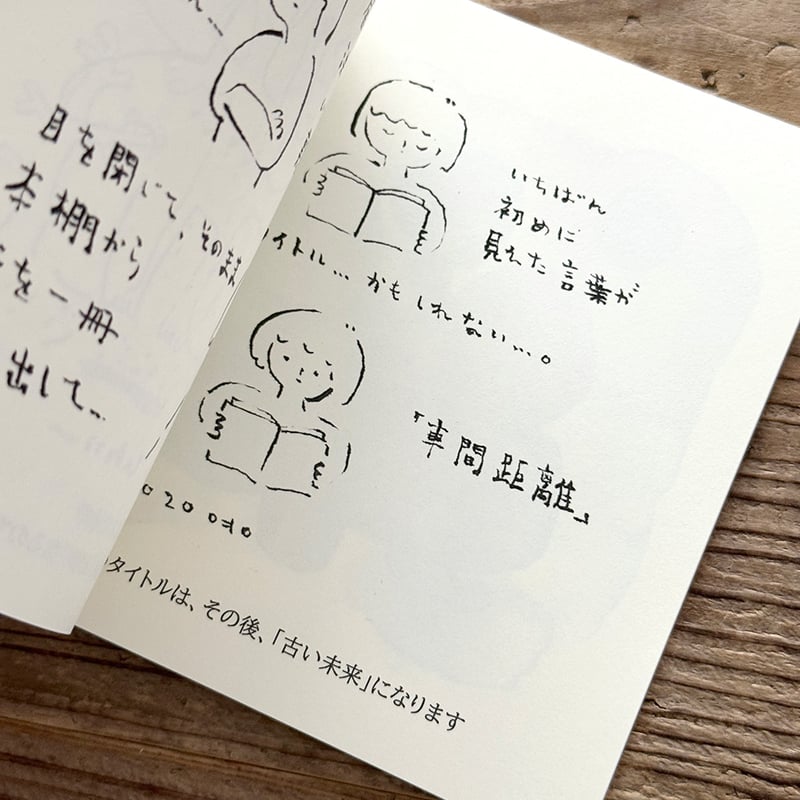 目を閉じて、そのまま
本棚から
を一冊
出して…
いちばん
初めに
見えた言葉が
イトル…かもしれない…。
「車間距離」
タイトルは、その後、「古い未来」になります